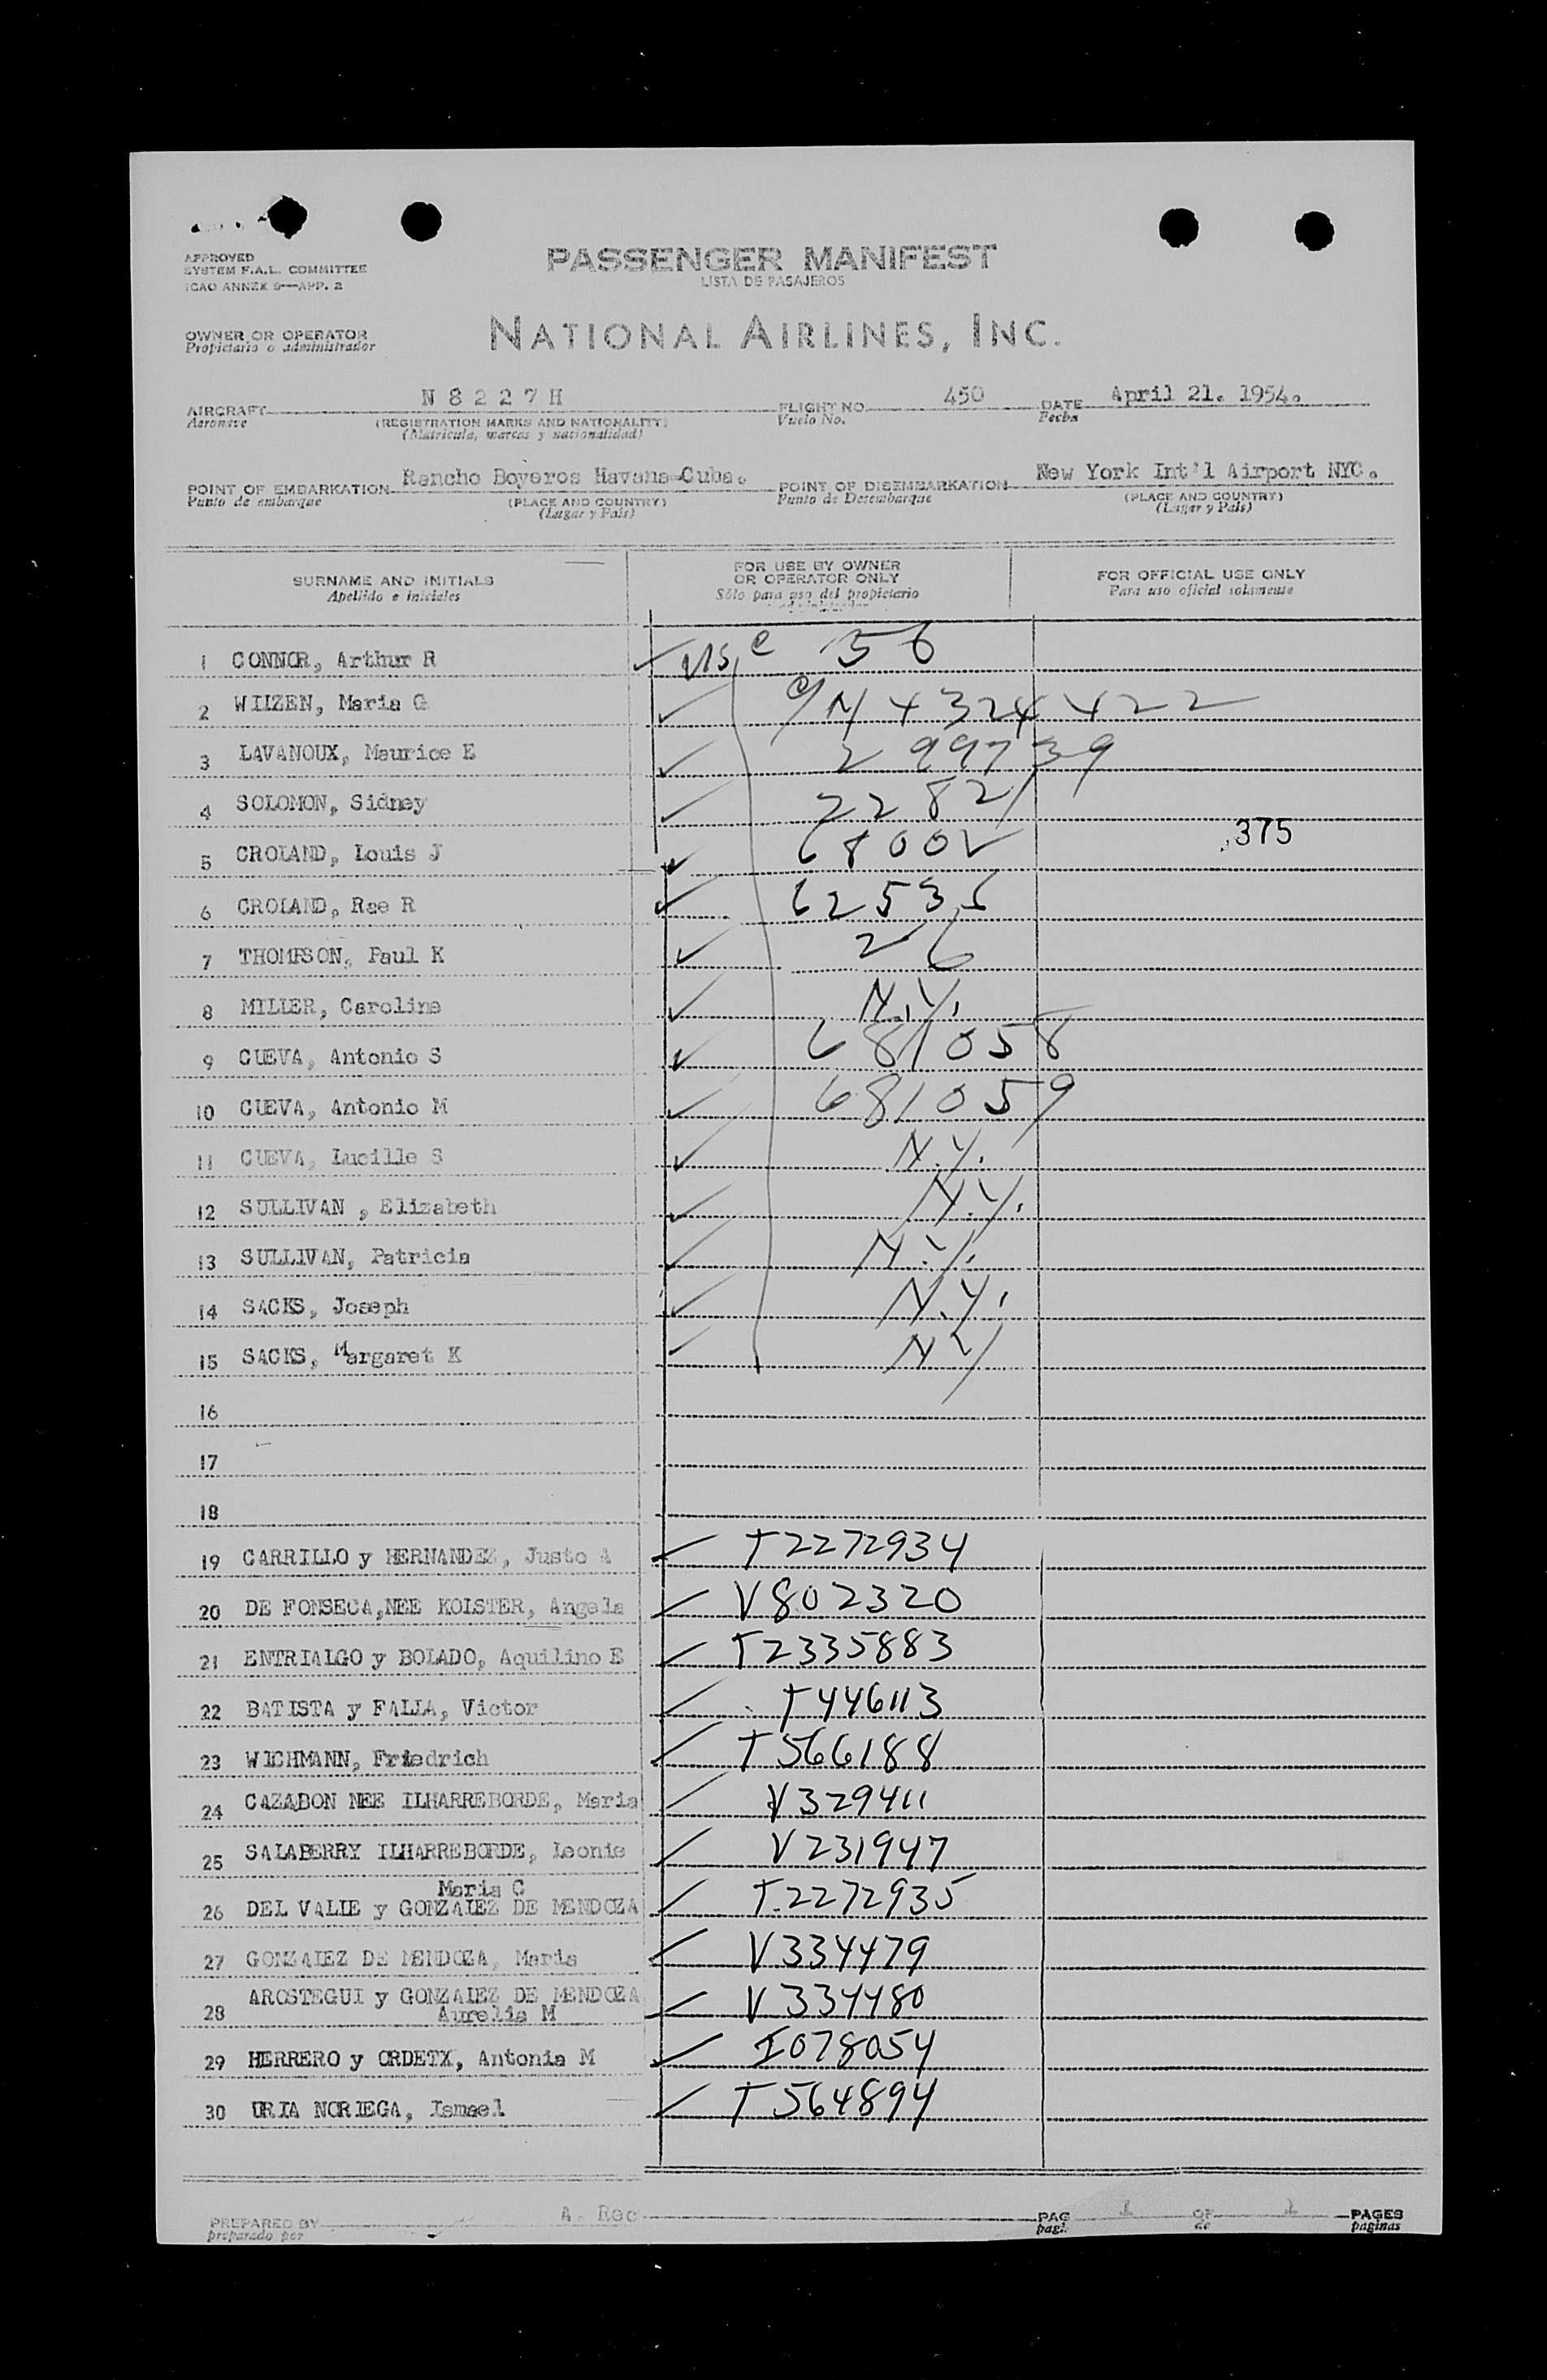 APPROVED
SYSTEM F.A.L. COMMITTEE
ICAO ANNEX 9—APP. 2
PASSENGER MANIFEST
LISTA DE PASAJEROS
OWNER OR OPERATOR
Propietario o administrador
NATIONAL AIRLINES, INC.
AIRCRAFT N 8 2 2 7 H FLIGHT NO. 450 DATE April 21. 1954.
Aeronave (REGISTRATION MARKS AND NATIONALITY) Vuelo No. Fecha
(Matricula, marcas y nacionalidad)
POINT OF EMBARKATION Rancho Boyeros Havana-Cuba. POINT OF DISEMBARKATION New York Int'l Airport NYC.
Punto de embarque (PLACE AND COUNTRY) Punto de Desembarque (PLACE AND COUNTRY)
(Lugar y Pais) (Lugar y Pais)
SURNAME AND INITIALS
Apellido e iniciales
FOR USE BY OWNER
OR OPERATOR ONLY
Sólo para uso del propietario
FOR OFFICIAL USE ONLY
Para uso oficial solamente
1 CONNOR, Arthur R 56
2 WIIZEN, Maria G
3 LAVANOUX, Maurice E 299739
4 SOLOMON, Sidney 22821
5 CROLAND, Louis J 68002 375
6 CROLAND, Rae R 62535
7 THOMPSON, Paul K 26
8 MILLER, Caroline N.Y.
9 CUEVA, Antonio S 681058
10 CUEVA, Antonio M 681059
11 CUEVA, Lucille S N.Y.
12 SULLIVAN , Elizabeth N.Y.
13 SULLIVAN, Patricia N.Y.
14 SACKS, Joseph N.Y.
15 SACKS, Margaret K NY
16
17
18
19 CARRILLO y HERNANDEZ, Justo A T2272934
20 DE FONSECA,NEE KOLSTER, Angela V802320
21 ENTRIALGO y BOLADO, Aquilino E T2335883
22 BATISTA y FALLA, Victor T446113
23 WICHMANN, Friedrich T566188
24 CAZABON NEE ILHARREBORDE, Maria V329411
25 SALABERRY ILHARREBORDE, Leonie V231947
Maria C
26 DEL VALLE y GONZALEZ DE MENDOZA T2272935
27 GONZALEZ DE MENDOZA, Maria V334479
28 AROSTEGUI y GONZALEZ DE MENDOZA V334480
Aurelia M
29 HERRERO y ORDETX, Antonia M I078054
30 URIA NORIEGA, Ismael T564894
PREPARED BY A. Rec PAG 1 OF 1 PAGES
preparado por pagi. de paginas